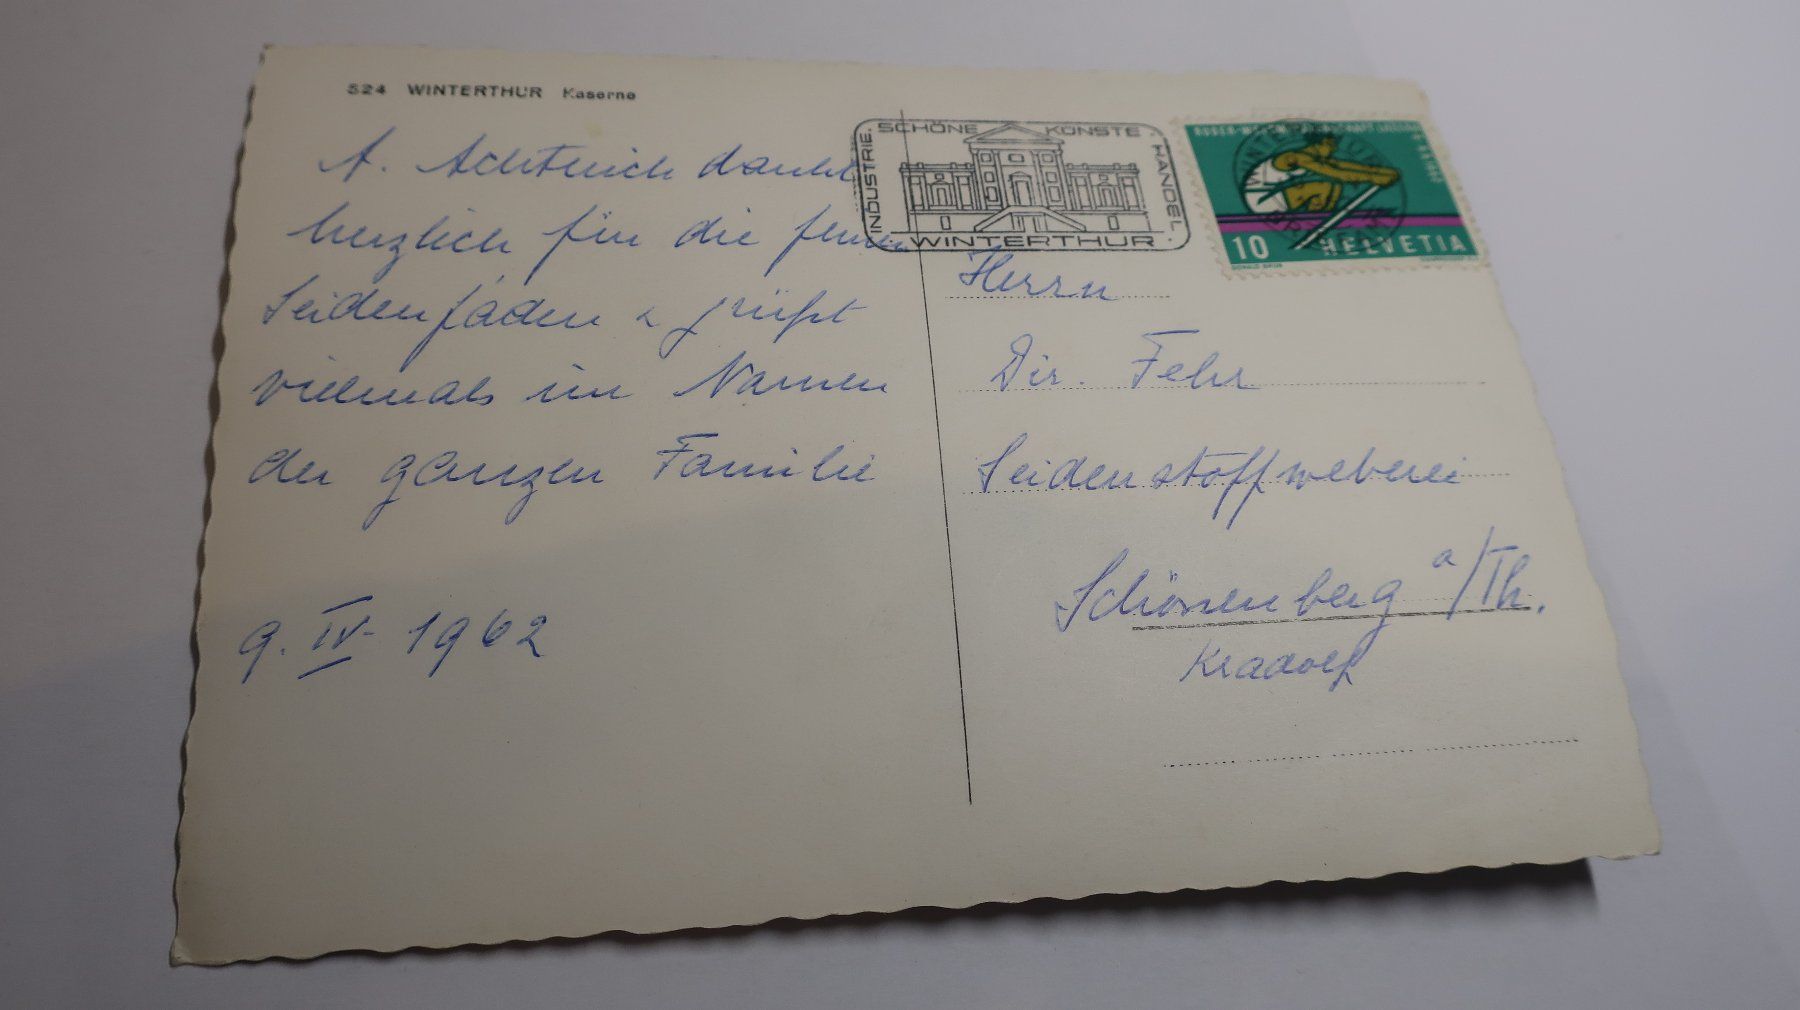 524 WINTERTHUR Kaserne
A. Achtnich dankt
herzlich für die feinen
Seidenfäden & grüßt
vielmals im Namen
der ganzen Familie
9. IV. 1962
SCHÖNE KÜNSTE.
INDUSTRIE.
HANDEL
WINTERTHUR
RUDER-WELTMEISTERSCHAFT LUZERN
WINTERTHUR
10 HELVETIA
DONALD BRUN
COURVOISIER
Herrn
Dir. Fehr
Seidenstoffweberei
Schönenberg a/Th.
Kradolf